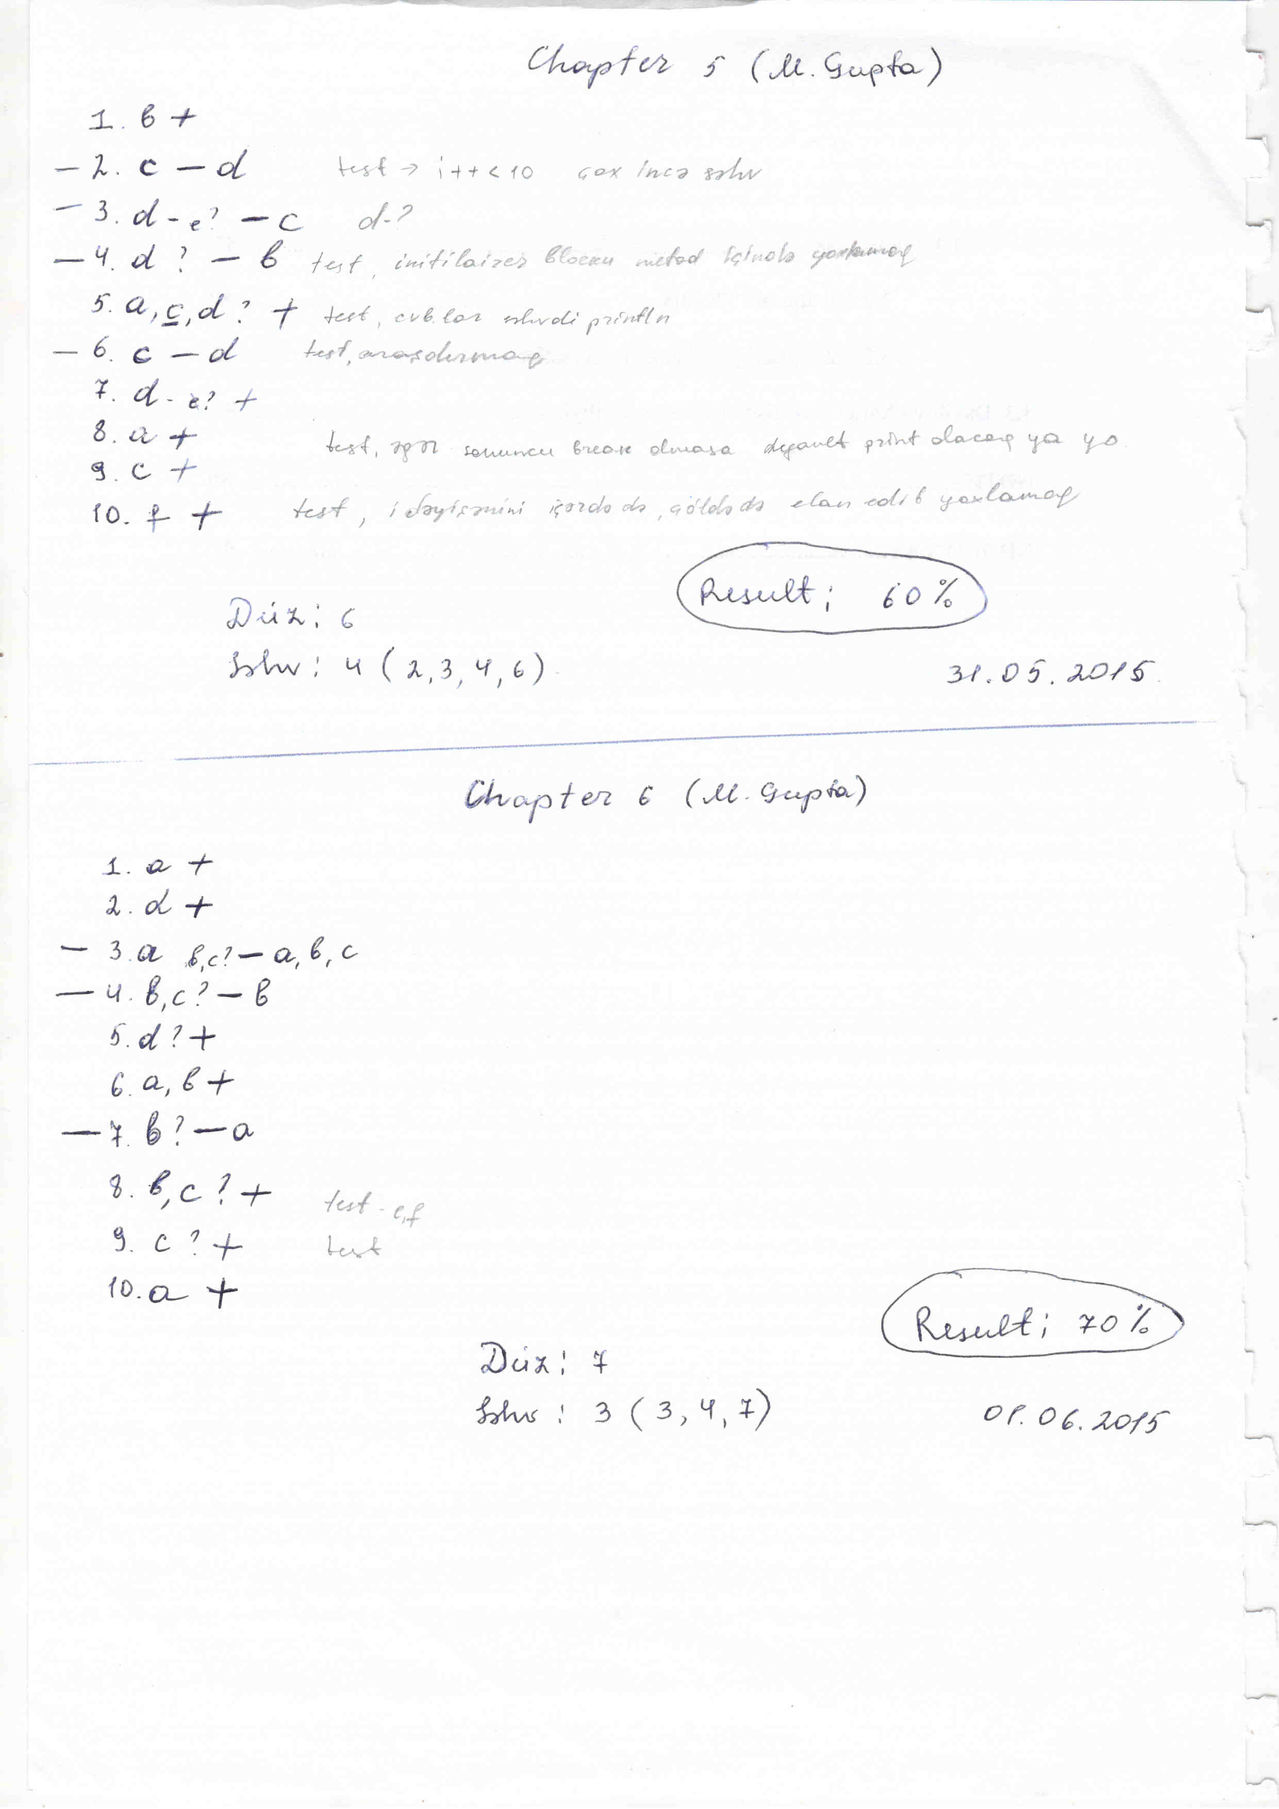 Chapter 5 (M. Gupta)
1. b +
– 2. c – d test → i++<10 çox incə səhv
– 3. d - e? – c d-?
– 4. d ? – b test, initilaizer blocku metod içində yoxlamaq
5. a, c, d ? + test, cvb.lar səhvdi println
– 6. c – d test, araşdırmaq
7. d - e? +
8. a + test, əgər sonuncu break olmasa default print olacaq ya yo
9. c +
10. f + test, i dəyişənini içərdə də, çöldə də elan edib yoxlamaq
Result: 60%
Düz: 6
Səhv: 4 (2, 3, 4, 6)
31.05.2015
Chapter 6 (M. Gupta)
1. a +
2. d +
– 3. a b,c? – a, b, c
– 4. b, c? – b
5. d ? +
6. a, b +
– 7. b ? – a
8. b, c ? + test - e,f
9. c ? + test
10. a +
Result: 70%
Düz: 7
Səhv: 3 (3, 4, 7)
01.06.2015